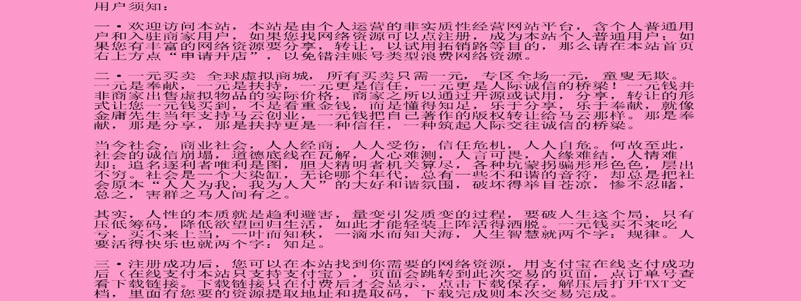 用户须知：
一·欢迎访问本站，本站是由个人运营的非实质性经营网站平台，含个人普通用
户和入驻商家用户，如果您找网络资源可以点注册，成为本站个人普通用户；如
果您有丰富的网络资源要分享，转让，以试用拓销路等目的，那么请在本站首页
右上方点“申请开店”，以免错注账号类型浪费网络资源。
二·一元买卖 全球虚拟商城，所有买卖只需一元，专区全场一元，童叟无欺。
一元是奉献，一元是扶持，一元更是信任，一元更是人际诚信的桥梁！一元钱并
非商家出售虚拟物品的实际价格，商家之所以通过开源或试用，分享，转让的形
式让您一元钱买到，不是看重金钱，而是懂得知足，乐于分享，乐于奉献，就像
金庸先生当年支持马云创业，一元钱把自己著作的版权转让给马云那样。那是奉
献，那是分享，那是扶持更是一种信任，一种筑起人际交往诚信的桥梁。
当今社会，商业社会，人人经商，人人受伤，信任危机，人人自危。何故至此，
社会的诚信崩塌，道德底线在瓦解，人心难测，人言可畏，人缘难结，人情难
却；追名逐利者唯利是图，胆大精明者机关算尽，各种坑蒙拐骗形形色色，层出
不穷。社会是一个大染缸，无论哪个年代，总有一些不和谐的音符，却总是把社
会原本“人人为我，我为人人”的大好和谐氛围，破坏得举目苍凉，惨不忍睹，
总之，害群之马人间有之。
其实，人性的本质就是趋利避害，量变引发质变的过程，要破人生这个局，只有
压低筹码，降低欲望回归生活，如此才能轻装上阵活得洒脱。一元钱买不来吃
亏，买不来上当，一叶而知秋，一滴水而知大海，人生智慧就两个字：规律。人
要活得快乐也就两个字：知足。
三·注册成功后，您可以在本站找到你需要的网络资源，用支付宝在线支付成功
后（在线支付本站只支持支付宝），页面会跳转到此次交易的页面，点订单号查
看下载链接。下载链接只在付费后才会显示，点击下载保存，解压后打开TXT文
档，里面有您要的资源提取地址和提取码，下载完成则本次交易完成。